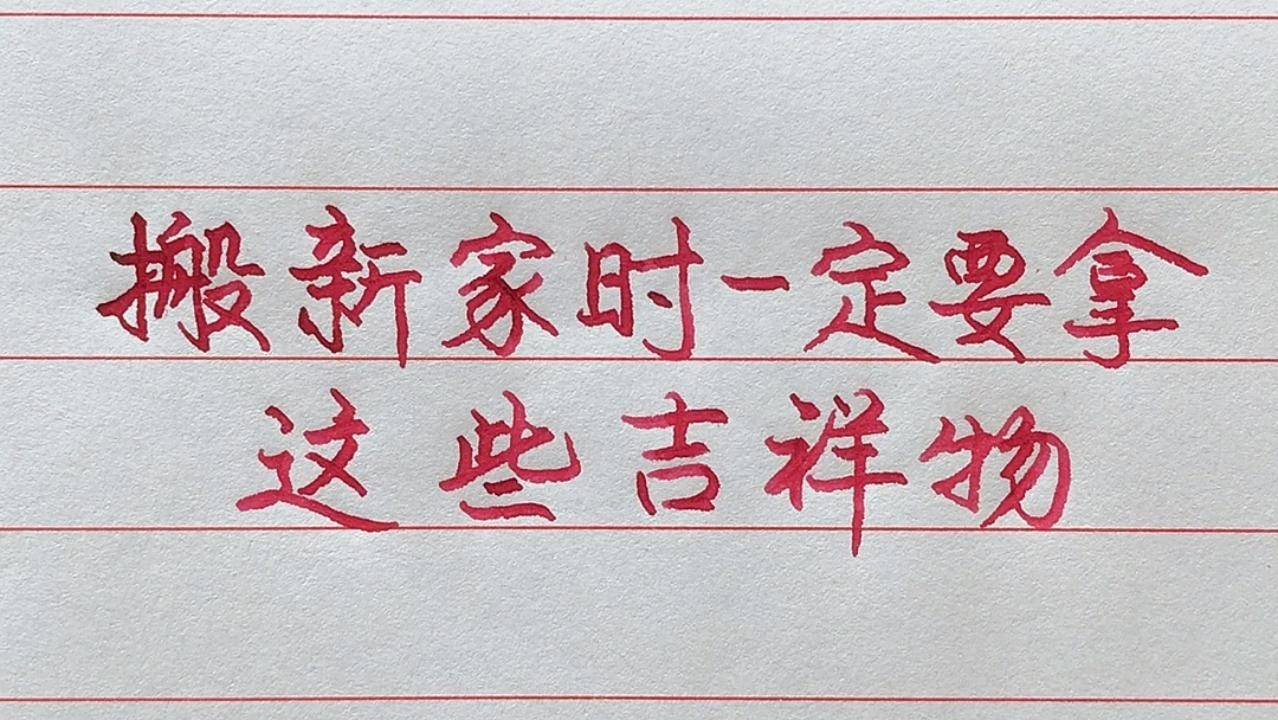 搬新家时一定要拿
这些吉祥物